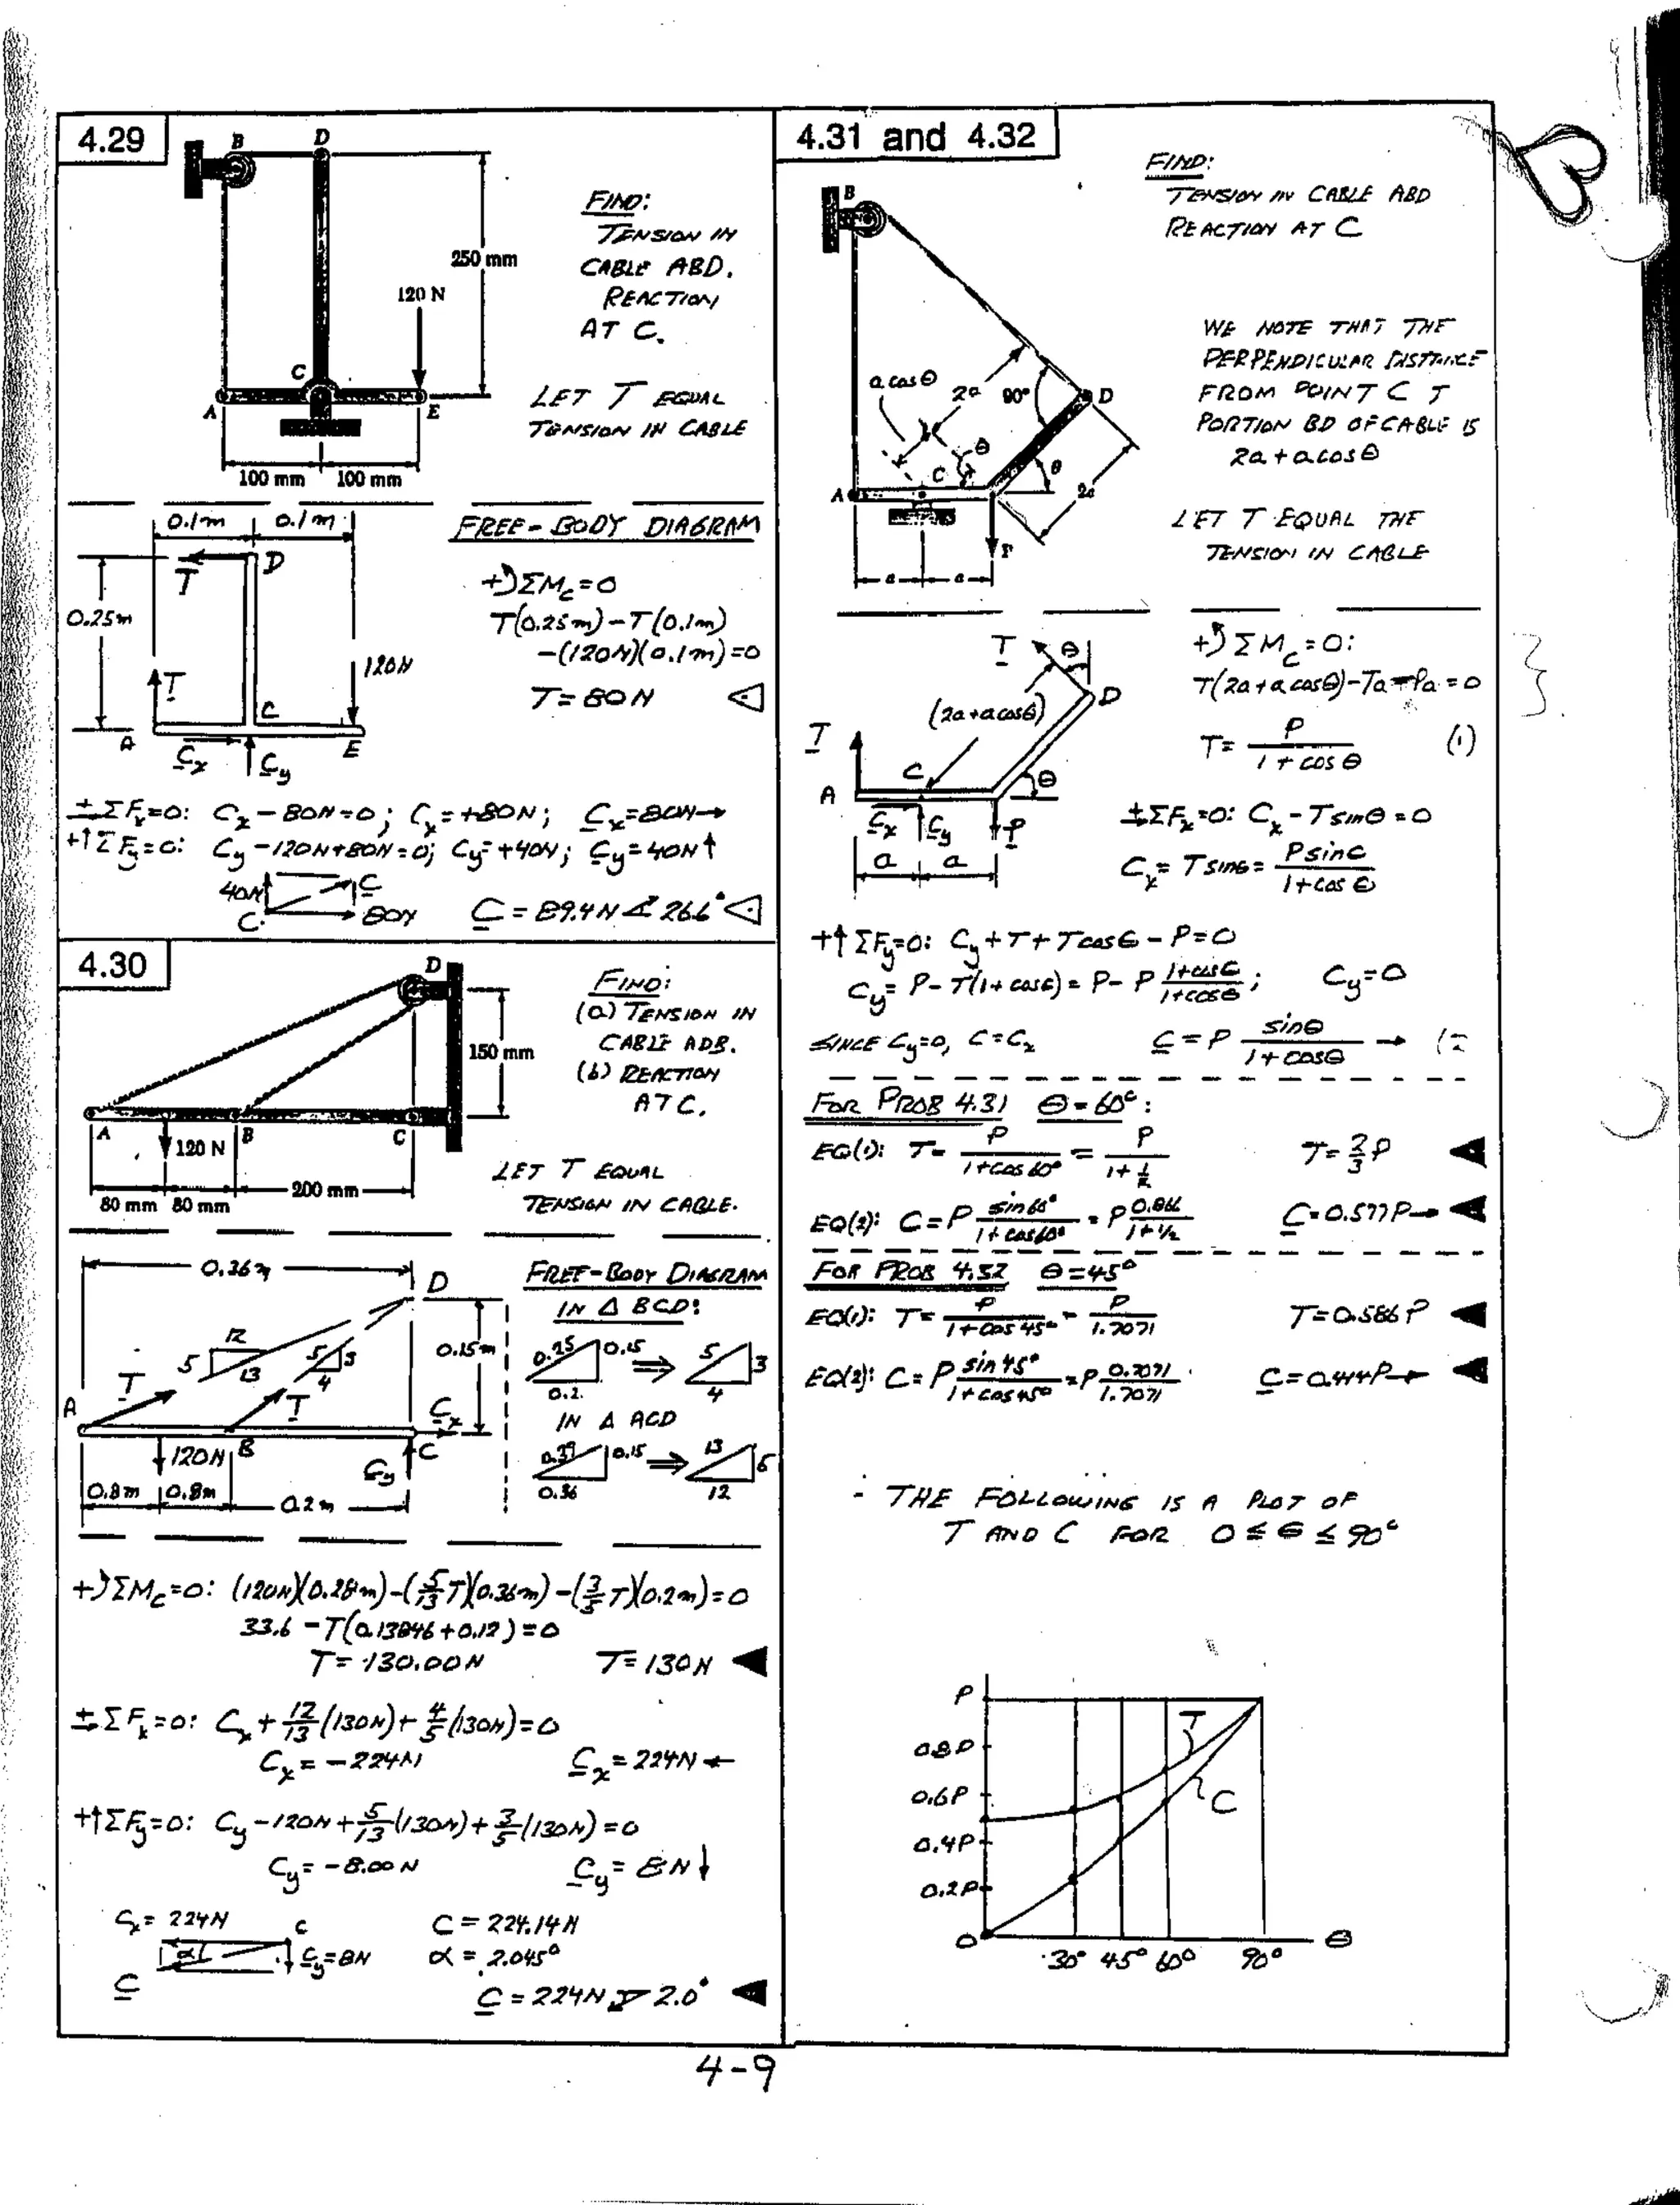 4.29
B D
250 mm
120 N
C
A E
100 mm 100 mm
FIND:
TENSION IN
CABLE ABD.
REACTION
AT C.
LET T EQUAL
TENSION IN CABLE
0.1m 0.1m
T D
0.25m
120N
T
A C E
Cx Cy
FREE-BODY DIAGRAM
+↺ΣMc=0
T(0.25m)-T(0.1m)
-(120N)(0.1m)=0
T=80N ◁
±→ΣFx=0: Cx-80N=0; Cx=+80N; Cx=80N→
+↑ΣFy=0: Cy-120N+80N=0; Cy=+40N; Cy=40N↑
40N C
C 80N
C=89.4N∡26.6°◁
4.30
D
150 mm
A 120 N B C
80 mm 80 mm 200 mm
FIND:
(a) TENSION IN
CABLE ADB.
(b) REACTION
AT C.
LET T EQUAL
TENSION IN CABLE.
0.36m D
12
5 13 5 3
4
0.15m
T T
A Cx
120N B Cy C
0.8m 0.8m 0.2m
FREE-BODY DIAGRAM
IN Δ BCD:
0.25 0.15 ⇒ 5 3
0.2 4
IN Δ ACD
0.39 0.15 ⇒ 13 5
0.36 12
+↺ΣMc=0: (120N)(0.28m)-(5/13 T)(0.36m)-(3/5 T)(0.2m)=0
33.6-T(0.13846+0.12)=0
T=130.00N T=130N ◀
±→ΣFx=0: Cx+12/13(130N)+4/5(130N)=0
Cx=-224N Cx=224N←
+↑ΣFy=0: Cy-120N+5/13(130N)+3/5(130N)=0
Cy=-8.00N Cy=8N↓
Cx=224N C C=224.14N
α Cy=8N α=2.045°
C C=224N 2.0° ◀
4.31 and 4.32
FIND:
TENSION IN CABLE ABD
REACTION AT C
B
a cosθ 2a 90° D
θ
A C θ 2a
P
a a
WE NOTE THAT THE
PERPENDICULAR DISTANCE
FROM POINT C T
PORTION BD OF CABLE IS
2a+acosθ
LET T EQUAL THE
TENSION IN CABLE
T θ
(2a+acosθ) D
T
A C θ
Cx Cy P
a a
+↺ΣMc=0:
T(2a+acosθ)-Ta-Pa=0
T=P/(1+cosθ) (1)
±→ΣFx=0: Cx-Tsinθ=0
Cx=Tsinθ=Psinθ/(1+cosθ)
+↑ΣFy=0: Cy+T+Tcosθ-P=0
Cy=P-T(1+cosθ)=P-P(1+cosθ)/(1+cosθ); Cy=0
SINCE Cy=0, C=Cx C=P sinθ/(1+cosθ) → (2
FOR PROB 4.31 θ=60°:
EQ(1): T=P/(1+cos60°)=P/(1+1/2) T=2/3 P ◀
EQ(2): C=P sin60°/(1+cos60°)=P 0.866/(1+1/2) C=0.577P→ ◀
FOR PROB 4.32 θ=45°
EQ(1): T=P/(1+cos45°)=P/1.7071 T=0.586P ◀
EQ(2): C=P sin45°/(1+cos45°)=P 0.7071/1.7071 C=0.414P→ ◀
THE FOLLOWING IS A PLOT OF
T AND C FOR 0≤θ≤90°
P
0.8P T
0.6P C
0.4P
0.2P
0 θ
30° 45° 60° 90°
4-9